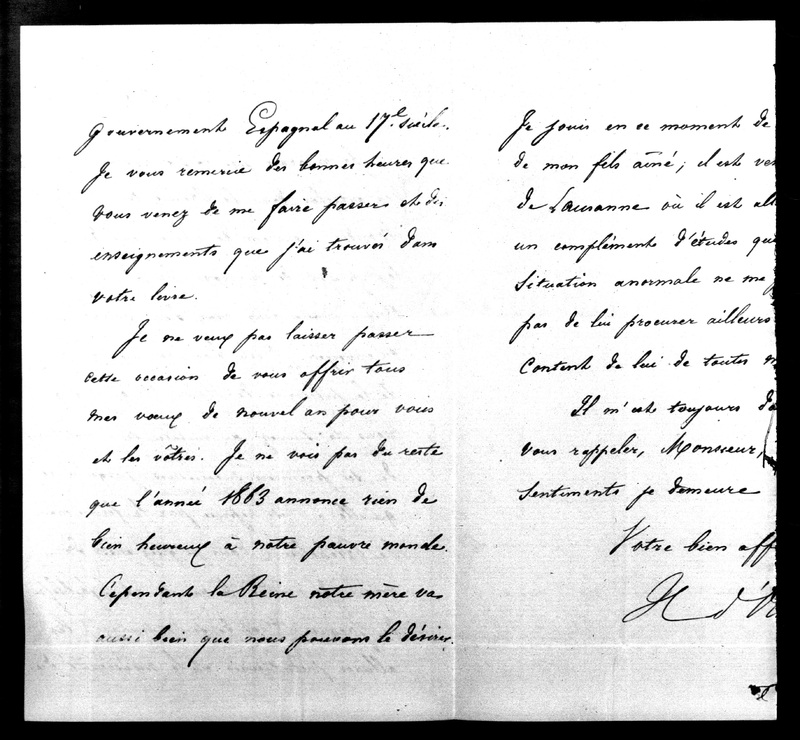 gouvernement Espagnol au 17e. siècle.
Je vous remercie des bonnes heures que
vous venez de me faire passer et des
enseignements que j'ai trouvés dans
votre livre.
Je ne veux pas laisser passer
cette occasion de vous offrir tous
mes vœux de nouvel an pour vous
et les vôtres. Je ne vois pas du reste
que l'année 1863 annonce rien de
bien heureux à notre pauvre monde.
Cependant la Reine notre mère va
aussi bien que nous pouvons le désirer.
Je jouis en ce moment de
de mon fils aîné; il est ve
de Lausanne où il est all
un complément d'études que
situation anormale ne me
pas de lui procurer ailleurs
Content de lui de toutes
Il m'est toujours
vous rappeler, Monsieur,
sentiments je demeure
Votre bien aff
H d'